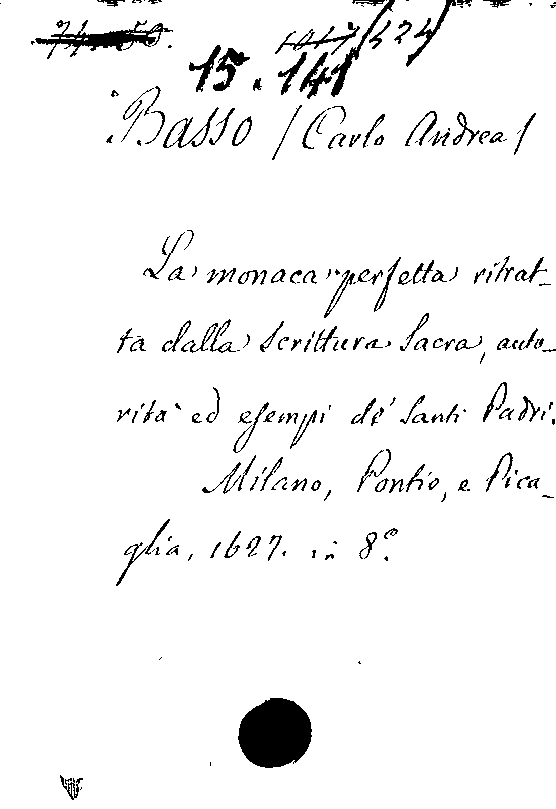 15.141
Basso /Carlo Andrea/
La monaca perfetta ritrat-
ta dalla Scrittura Sacra, auto-
rità ed esempi de' Santi Padri.
Milano, Pontio, e Pica-
glia, 1627. in 8º.